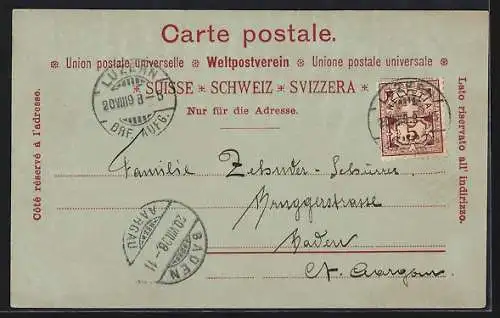 Carte postale.
* Union postale universelle * Weltpostverein * Unione postale universale *
* SUISSE * SCHWEIZ * SVIZZERA *
Nur für die Adresse.
Côté réservé à l'adresse.
Lato riservato all' indirizzo.
LUZERN
BRF. AUFG.
5
Familie Zehnder-
Bruggerstrasse
Baden
Kt. Aargau
BADEN
AARGAU